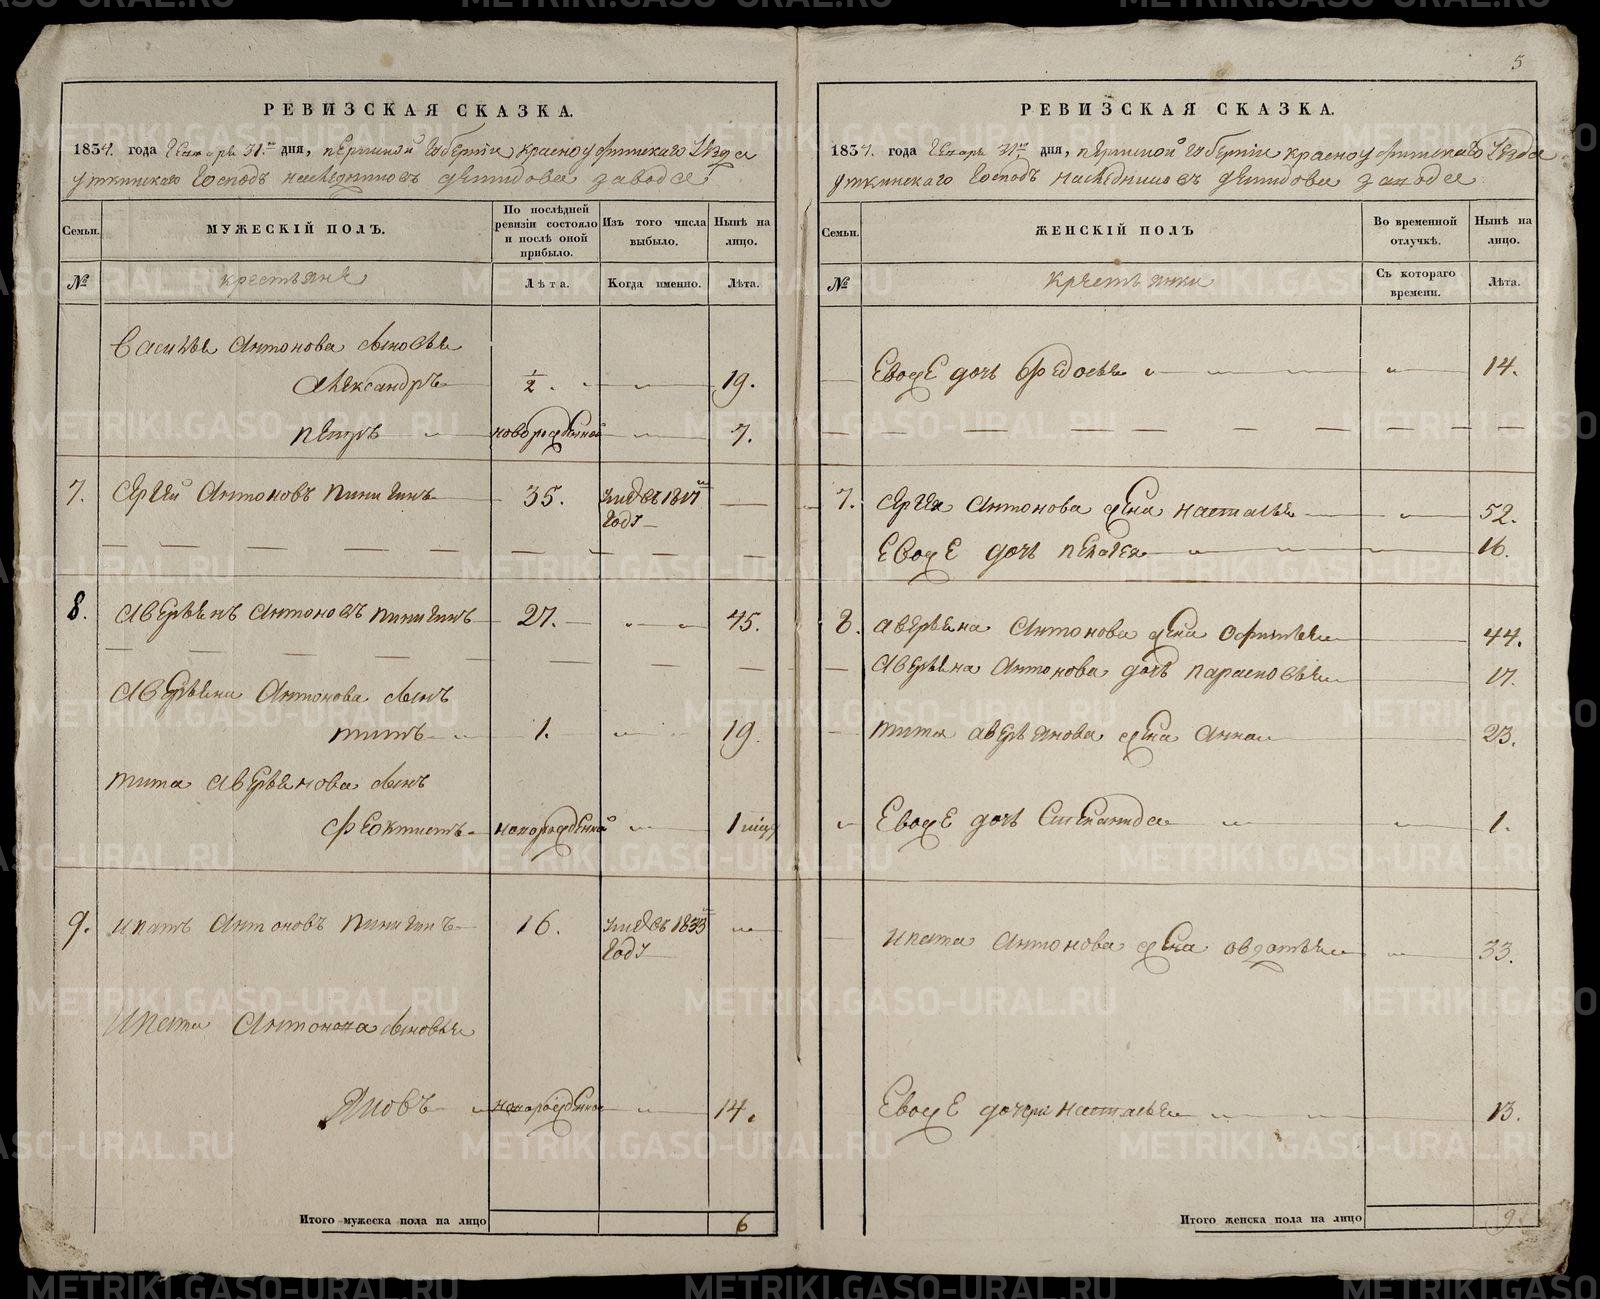 5
РЕВИЗСКАЯ СКАЗКА.
1834. года Генваря 31.го дня, Пермской губернии Красноуфимскаго уезда
Уткинскаго Господъ наследниковъ Демидова завода
Семьи.
МУЖЕСКІЙ ПОЛЪ.
По послѣдней ревизіи состояло и послѣ оной прибыло.
Изъ того числа выбыло.
Нынѣ на лицо.
№
крестьяне
Лѣта.
Когда именно.
Лѣта.
Василья Антонова сыновья
Александръ ½. 19.
Петръ новорожденной 7.
7. Сергей Антоновъ Пинигинъ 35.
году
8. Аверьянъ Антоновъ Пинигинъ 27. 45.
Аверьяна Антонова сынъ
Титъ 1. 19
Тита Аверьянова сынъ
Феоктистъ новорожденной 1
9. Ипатъ Антоновъ Пинигинъ 16. 1833
году
Ипата Антонова сыновья
Яковъ новорожденной 14.
Итого мужеска пола на лицо 6
РЕВИЗСКАЯ СКАЗКА.
1834. года Генваря 31.го дня, Пермской губернии Красноуфимскаго уезда
Уткинскаго Господъ наследниковъ Демидова завода
Семьи.
ЖЕНСКІЙ ПОЛЪ
Во временной отлучкѣ.
Нынѣ на лицо.
№
Крестьянки
Съ котораго времени.
Лѣта.
Евоже дочь Федосья 14.
7. Сергея Антонова жена Насталья 52.
Евоже дочь Пелагея 16.
8. Аверьяна Антонова жена Офимья 44.
Аверьяна Антонова дочь Парасковья 17.
Тита Аверьянова жена Анна 23.
Евоже дочь 1.
Ипата Антонова жена Овдотья 33.
Евоже дочери Насталья 13.
Итого женска пола на лицо 9
METRIKI.GASO-URAL.RU